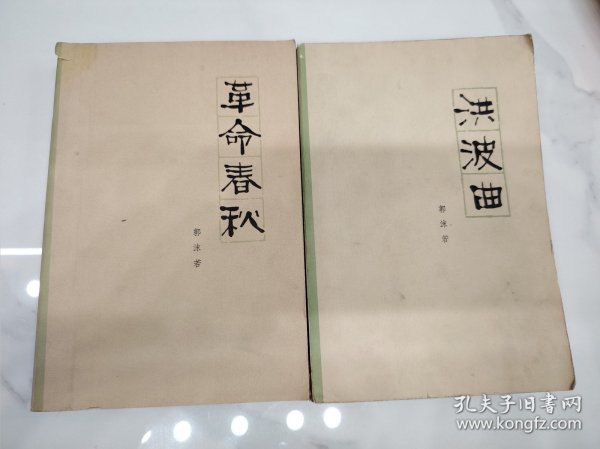 革命春秋
郭沫若
洪波曲
郭沫若
孔夫子旧书网
www.kongfz.com